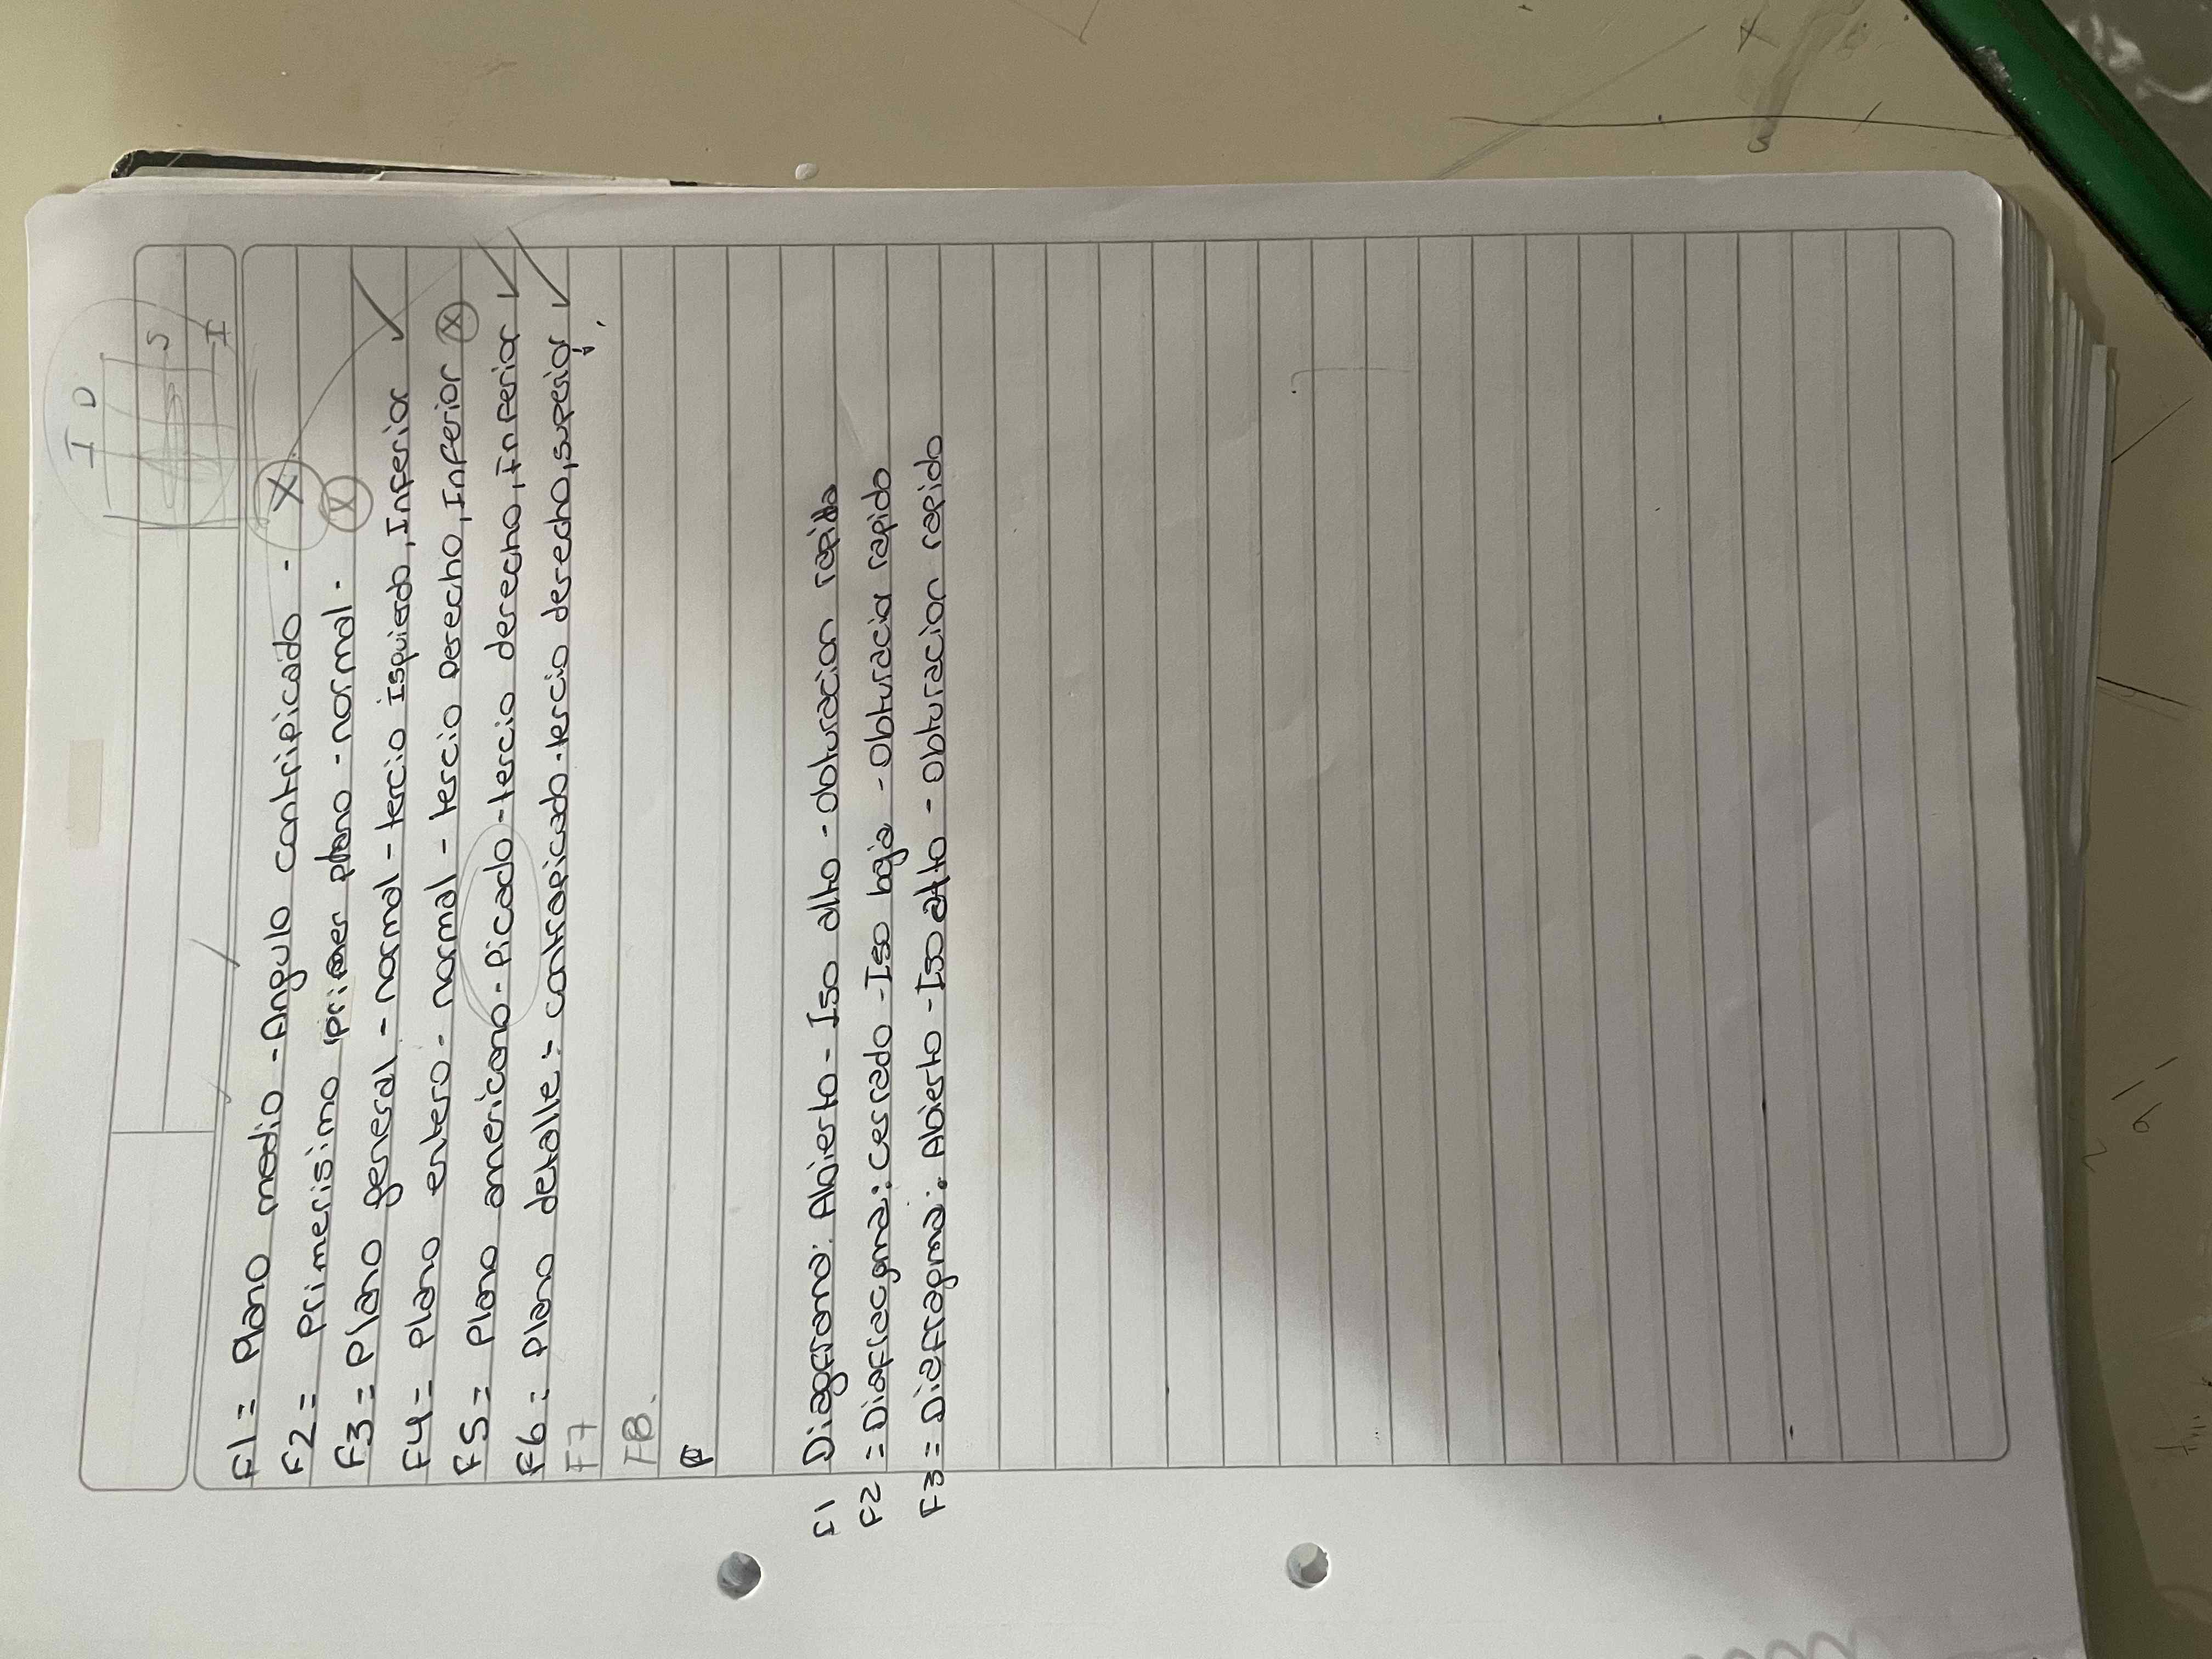 I D
S
I
F1= Plano medio - Angulo contripicado - X
F2= Primerisimo primer plano - normal - X
F3= Plano general - normal - tercio Isquierdo, Inferior ✓
F4= plano entero - normal - tercio Derecho, Inferior X
F5= Plano americano - Picado - tercio derecho, Inferior ✓
F6= Plano detalle - contrapicado - tercio derecho, superior ✓
F7
F8.
F1 Diagframa: Abierto - Iso alto - obturacion rapida
F2 = Diafracgma: Cerrado - Iso baja - Obturacion rapido
F3 = Diafragma: Abierto - Iso alto - Obturacion rapido